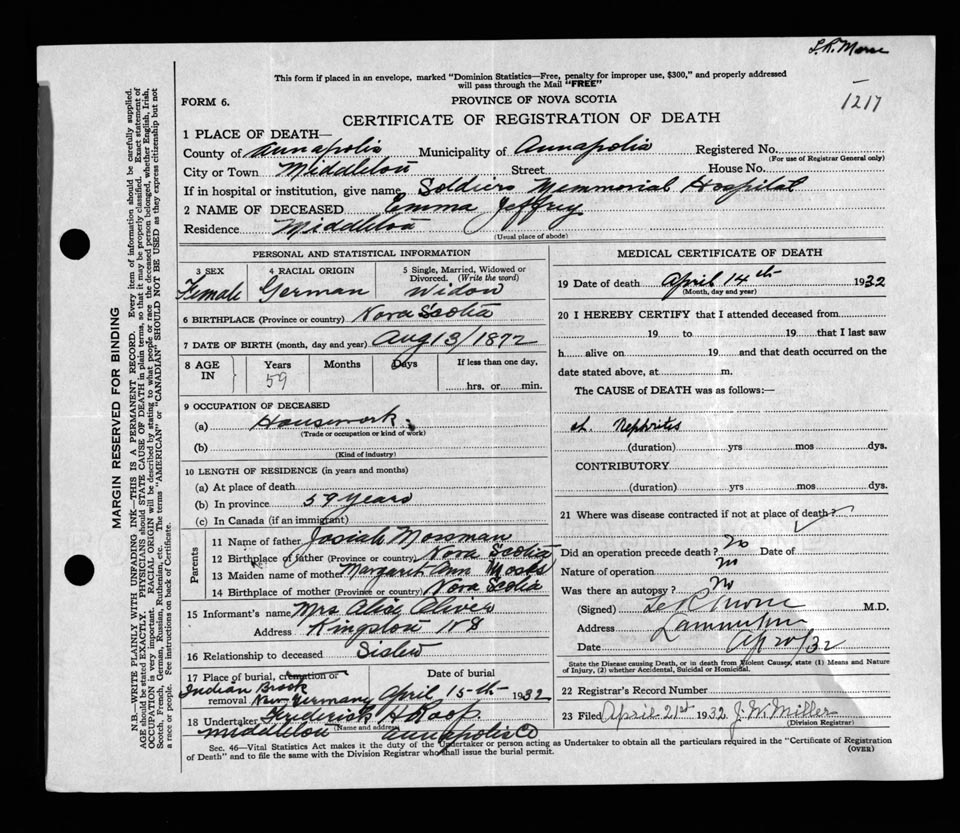 This form if placed in an envelope, marked "Dominion Statistics—Free, penalty for improper use, $300," and properly addressed
will pass through the Mail "FREE"
1217
FORM 6.
PROVINCE OF NOVA SCOTIA
CERTIFICATE OF REGISTRATION OF DEATH
1 PLACE OF DEATH—
County of Annapolis Municipality of Annapolis Registered No.
(For use of Registrar General only)
City or Town Middleton Street House No.
If in hospital or institution, give name Soldiers Memmorial Hospital
2 NAME OF DECEASED Emma Jeffrey
Residence Middleton
(Usual place of abode)
PERSONAL AND STATISTICAL INFORMATION
3 SEX 4 RACIAL ORIGIN 5 Single, Married, Widowed or Divorced. (Write the word)
Female German Widow
6 BIRTHPLACE (Province or country) Nova Scotia
7 DATE OF BIRTH (month, day and year) Aug 13/1872
8 AGE IN Years Months Days If less than one day,
59 hrs. or min.
9 OCCUPATION OF DECEASED
(a) Housework
(Trade or occupation or kind of work)
(b)
(Kind of industry)
10 LENGTH OF RESIDENCE (in years and months)
(a) At place of death
(b) In province 59 years
(c) In Canada (if an immigrant)
Parents
11 Name of father Josiah Mossman
12 Birthplace of father (Province or country) Nova Scotia
13 Maiden name of mother Margaret Ann
14 Birthplace of mother (Province or country) Nova Scotia
15 Informant's name Mrs Alice Oliver
Address Kingston N S
16 Relationship to deceased Sister
17 Place of burial, cremation or removal Date of burial
Indian Brook
New Germany April 15-th 1932
18 Undertaker Frederick H Roop
(Name and address)
Middleton Annapolis Co
MEDICAL CERTIFICATE OF DEATH
19 Date of death April 14th 1932
(Month, day and year)
20 I HEREBY CERTIFY that I attended deceased from
19 to 19 that I last saw
h alive on 19 and that death occurred on the
date stated above, at m.
The CAUSE of DEATH was as follows:—
ch. Nephritis
(duration) yrs mos dys.
CONTRIBUTORY
(duration) yrs mos dys.
21 Where was disease contracted if not at place of death?
Did an operation precede death? No Date of
Nature of operation no
Was there an autopsy? No
(Signed) M.D.
Address
Date Ap 20/32
State the Disease causing Death, or in death from Violent Causes, state (1) Means and Nature
of Injury, (2) whether Accidental, Suicidal or Homicidal.
22 Registrar's Record Number
23 Filed April 21st 1932 J. W. Miller
(Division Registrar)
Sec. 46—Vital Statistics Act makes it the duty of the Undertaker or person acting as Undertaker to obtain all the particulars required in the "Certificate of Registration
of Death" and to file the same with the Division Registrar who shall issue the burial permit.
(OVER)
MARGIN RESERVED FOR BINDING
N.B.—WRITE PLAINLY WITH UNFADING INK—THIS IS A PERMANENT RECORD. Every item of information should be carefully supplied.
AGE should be stated EXACTLY. PHYSICIANS should STATE CAUSE OF DEATH in plain terms, so that it may be properly classified. Exact statement of
OCCUPATION is very important. RACIAL ORIGIN will be described by stating to what people or race the deceased person belonged, whether English, Irish,
Scotch, French, German, Russian, Ruthenian, etc. The terms "AMERICAN" or "CANADIAN" SHOULD NOT BE USED as they express citizenship but not
a race or people. See instructions on back of Certificate.